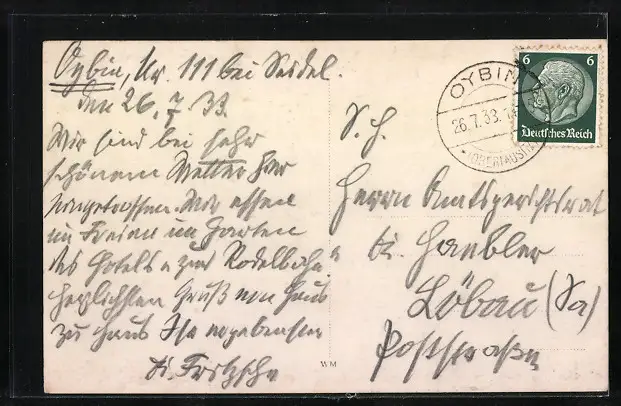 Oybin, Nr. 111 bei Seidel.
den 26. 7 33.
Wir sind bei sehr
schönem Wetter hier
eingetroffen. Wir essen
im Freien im Garten
des Hotels „zur Rodelbahn“
Herzlichsten Gruß von Haus
zu Haus Ihr ergebenster
Fritzsche
OYBIN
26.7.33.
(OBERLAUSITZ)
6 6
Deutsches Reich
S. H.
Herrn Amtsgerichtsrat
Haubler
Löbau (Sa)
Poststraße
WM